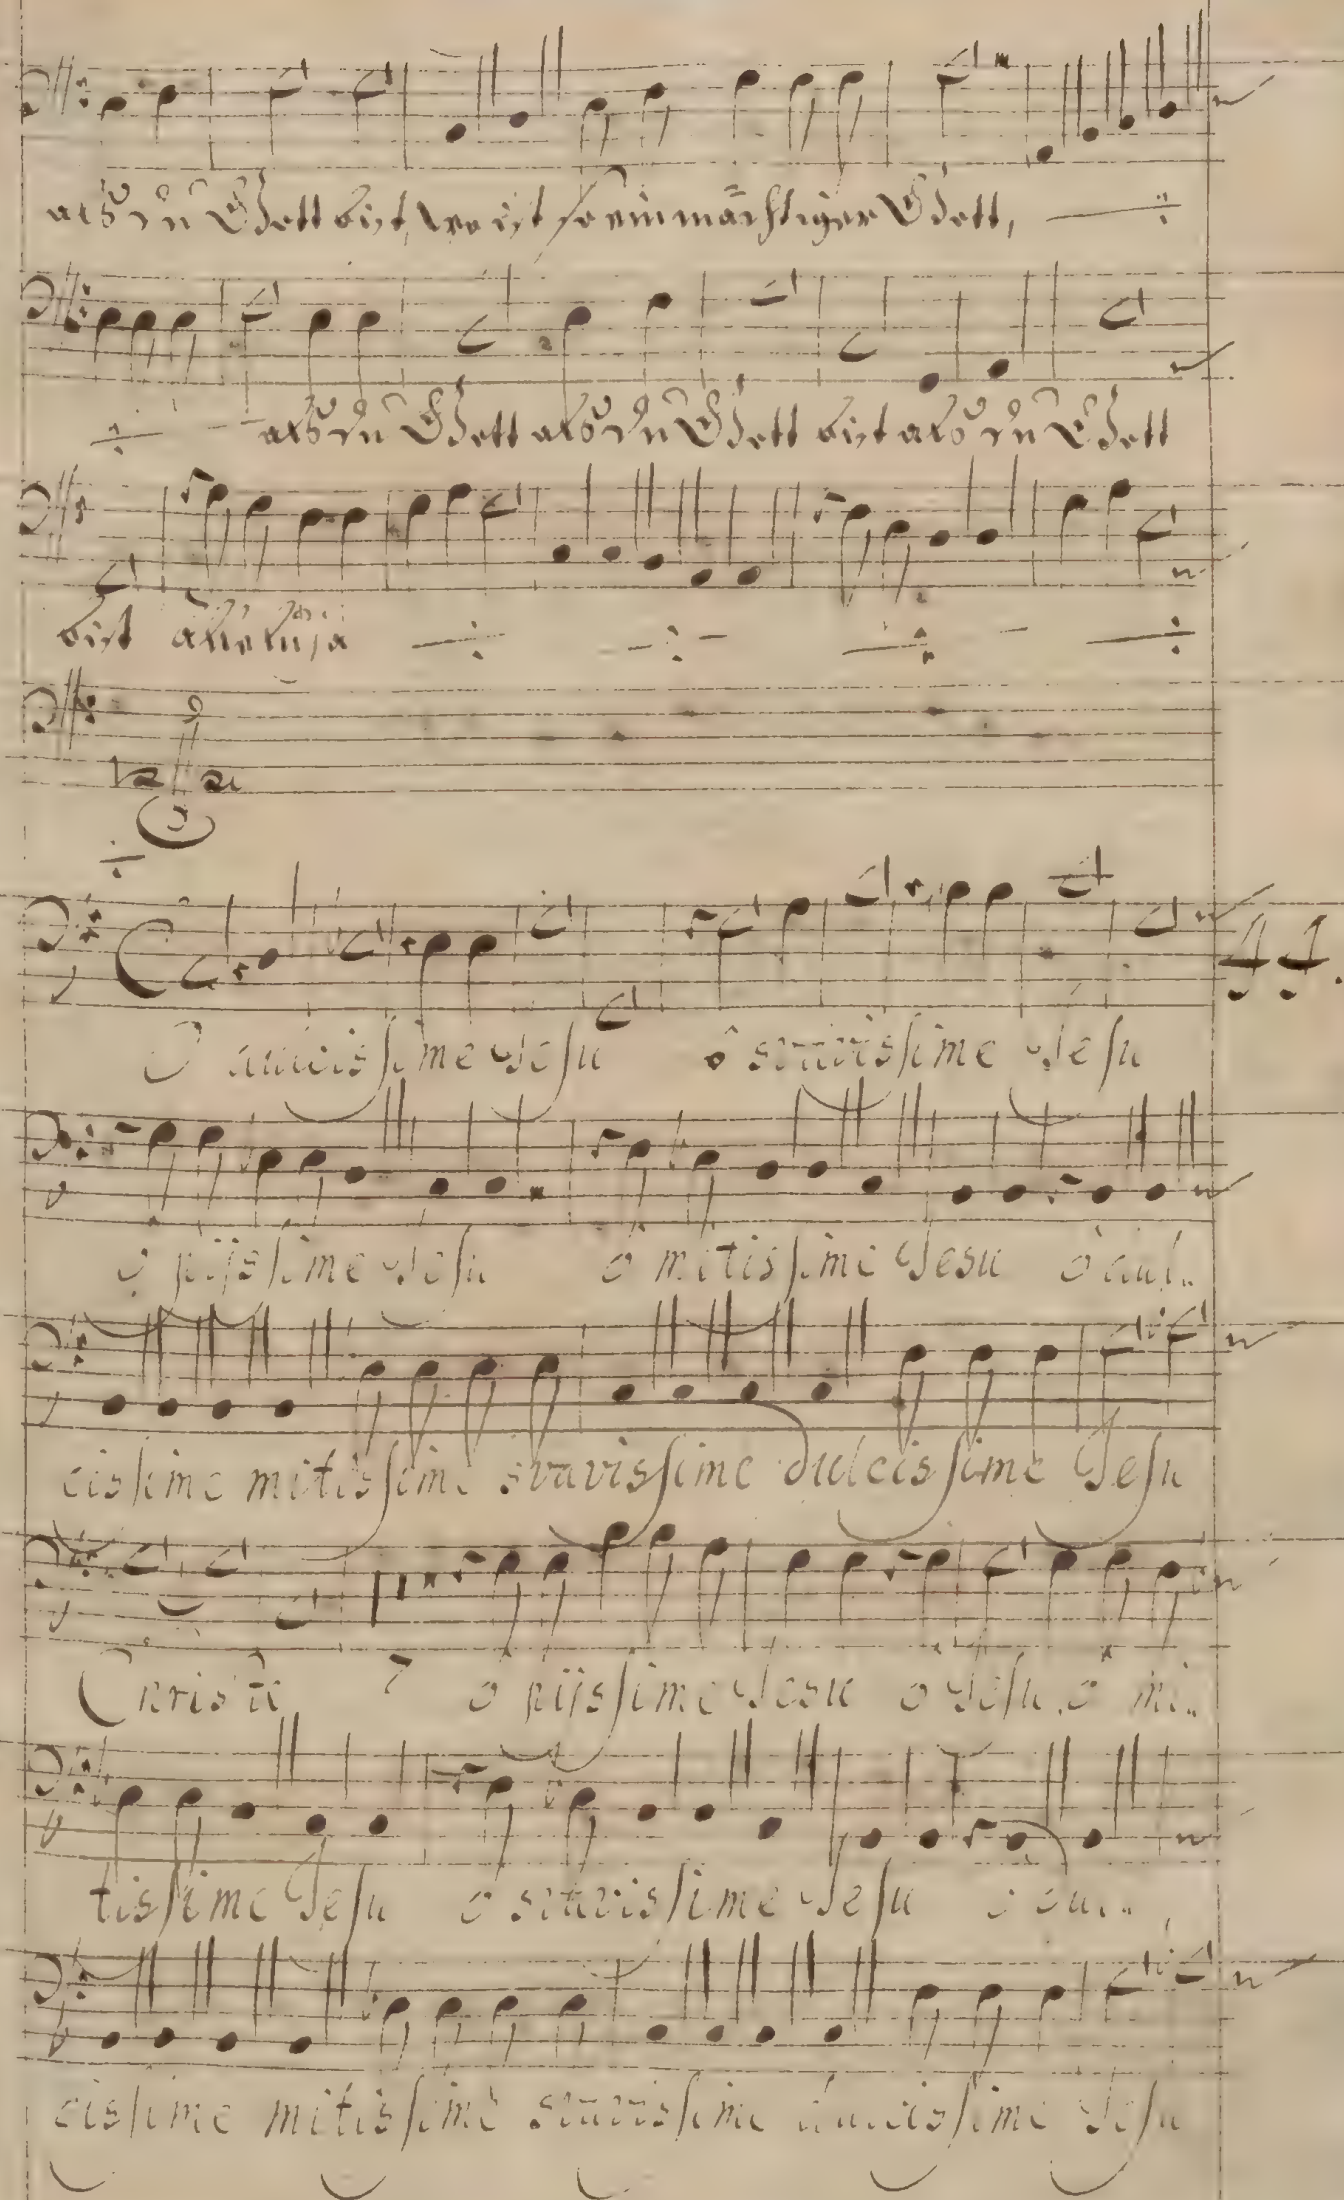 als du Gott bist, wo ist so ein mächtiger Gott,
als du Gott als du Gott bist als du Gott
bist alleluja
O dulcissime Jesu ô suavissime Jesu
o pijssime Jesu o mitissime Jesu o dul..
cissime mitissime svavissime dulcissime Jesu
Christe o pijssime Jesu o Jesu o mi..
tissime Jesu o suavissime Jesu o dul..
cissime mitissime suavissime dulcissime Jesu